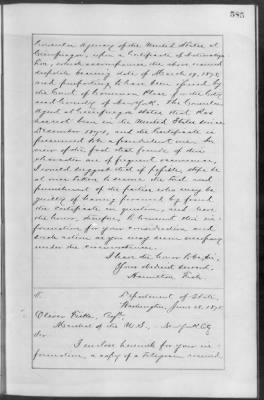 585
Consular Agency of the United States at
Cienfuegos, upon a Certificate of Naturaliza-
tion, which accompanies the above named
dispatch bearing date of March 19, 1875,
and purporting to have been issued by
the Court of Common Pleas for the City
and County of New York. The Consular
Agent at Cienfuegos states that has
not been in the United States since
December 1874, and the Certificate is
presumed to be a fraudulent one. In
view of the fact that frauds of this
character are of frequent occurrence,
I would suggest that if possible steps be
at once taken to secure the trial and
punishment of the parties who may be
guilty of having procured by fraud
the certificate in question, and have
the honor, therefore, to transmit this in-
formation for your consideration and
such action as you may deem necessary
under the circumstances.
I have the honor to be, Sir,
Your obedient servant,
Hamilton Fish.
Department of State,
Washington, June 1875
Oliver Fiske, Esqre.
Marshal of the U.S. New York City
Sir
I enclose herewith for your in-
formation, a copy of a telegram received